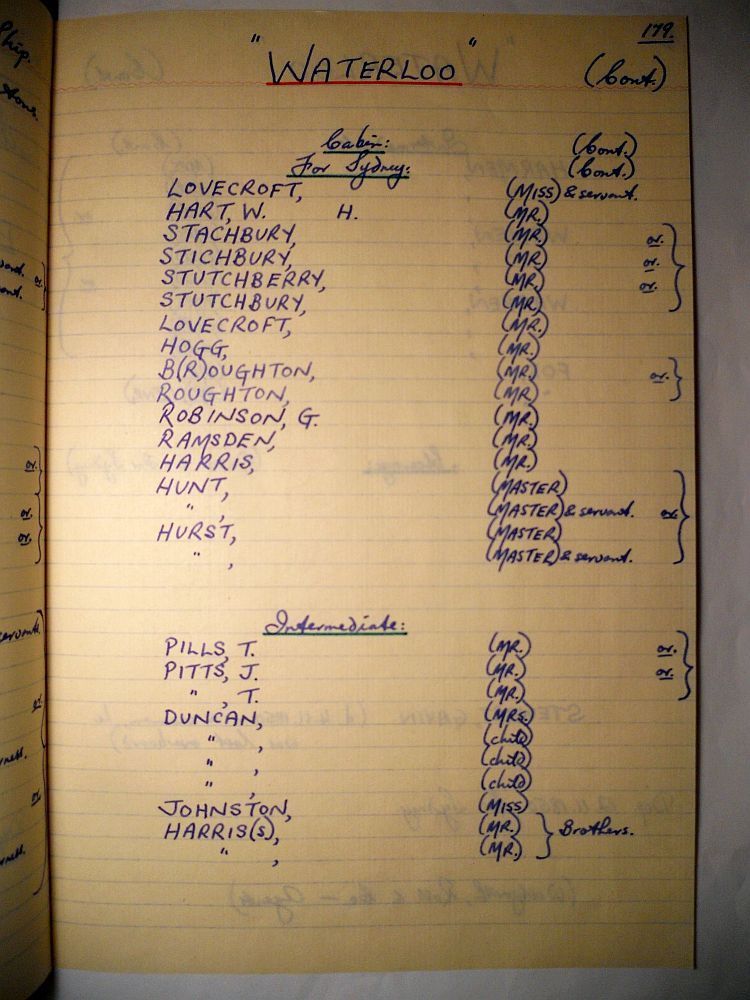 179.
"WATERLOO" (Cont.)
Cabin: (Cont.)
For Sydney: (Cont.)
LOVECROFT, (MISS) & servant.
HART, W. H. (MR.)
STACHBURY, (MR.) or.
STICHBURY, (MR.) or.
STUTCHBERRY, (MR.) or.
STUTCHBURY, (MR.)
LOVECROFT, (MR.)
HOGG, (MR.)
B(R)OUGHTON, (MR.) or.
ROUGHTON, (MR.)
ROBINSON, G. (MR.)
RAMSDEN, (MR.)
HARRIS, (MR.)
HUNT, (MASTER)
" , (MASTER) & servant. or.
HURST, (MASTER)
" , (MASTER) & servant.
Intermediate:
PILLS, T. (MR.) or.
PITTS, J. (MR.) or.
" , T. (MR.)
DUNCAN, (MRS.)
" , (child)
" , (child)
" , (child)
JOHNSTON, (MISS)
HARRIS(S), (MR.) } Brothers.
" , (MR.)